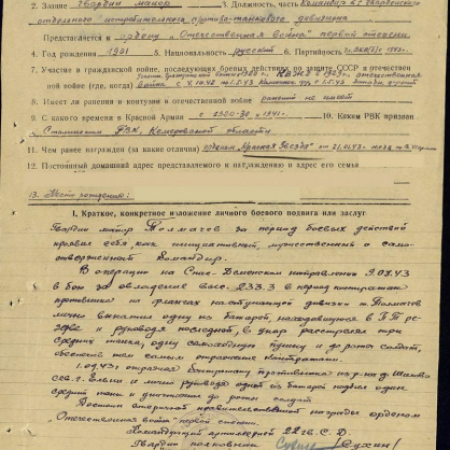 2. Звание Гвардии майор 3. Должность, часть Командир 62 Гвардейского
отдельного истребительного противотанкового дивизиона
Представляется к ордену „Отечественная война" первой степени
4. Год рождения 1901 5. Национальность русский 6. Партийность
7. Участие в гражданской войне, последующих боевых действиях по защите СССР и отечествен
ной войне (где, когда)
8. Имеет ли ранения и контузии в отечественной войне ранений не имеет
9. С какого времени в Красной Армии с 10. Каким РВК призван
Сталинским РВК, Кемеровской области
11. Чем ранее награжден (за какие отличия) орденом „Красная Звезда"
12. Постоянный домашний адрес представляемого к награждению и адрес его семьи
13. Место рождения:
I. Краткое, конкретное изложение личного боевого подвига или заслуг
Гвардии майор Толмачов за период боевых действий
проявил себя как инициативный, мужественный и само-
отверженный командир.
В операции на Спас-Деменском направлении 9.08.43
в бою за овладение выс. 233.3 в период контратак
противника на флангах наступающей дивизии т. Толмачов
лично выкатил одну из батарей, находившуюся в
и руководя последней, в упор расстрелял три
средних танка, одну самоходную пушку и до роты солдат,
обеспечив тем самым отражение контратаки.
1.09.43 г. отражая контратаку противника из р-на д.
сев. г. Ельни и лично руководя одной из батарей подбил один
средний танк и уничтожил до роты солдат
Достоин вторичной правительственной награды орденом
„Отечественная война" первой степени.
Командующий артиллерией 22 гв. С. Д.
Гвардии полковник /Сухин/